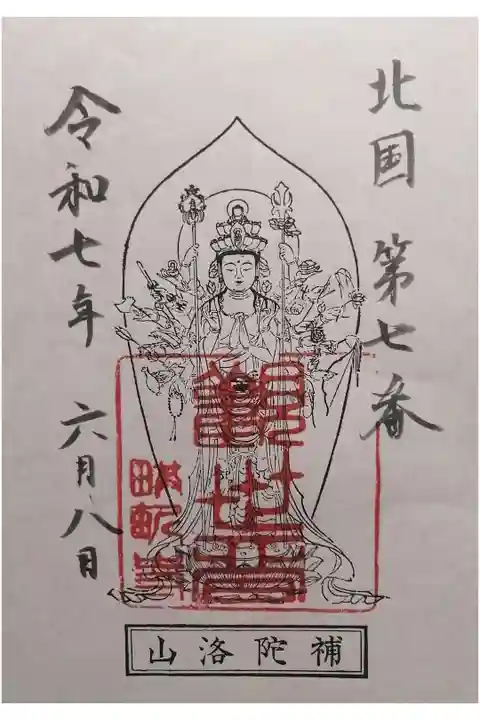 北国 第七番
令和七年 六月八日
観世音
補陀洛山